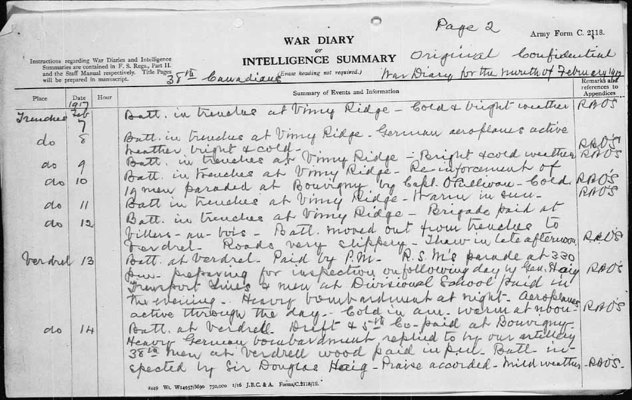 Page 2
WAR DIARY
Army Form C. 2118.
or
INTELLIGENCE SUMMARY
Original Confidential
Instructions regarding War Diaries and Intelligence
Summaries are contained in F. S. Regs., Part II.
and the Staff Manual respectively. Title Pages
will be prepared in manuscript.
38th Canadians
(Erase heading not required.)
War Diary for the month of February 1917
Place Date Hour Summary of Events and Information Remarks and references to Appendices
1917
Trenches Feb 7 Batt. in trenches at Vimy Ridge - Cold & bright weather
do 8 Batt. in trenches at Vimy Ridge - German aeroplanes active
Weather bright & cold -
do 9 Batt. in trenches at Vimy Ridge - Bright & cold weather
do 10 Batt. in trenches at Vimy Ridge - Re-inforcement of
19 men paraded at Bouvigny by Capt. O'Sullivan - Cold
do 11 Batt in trenches at Vimy Ridge - Warm in sun -
do 12 Batt. in trenches at Vimy Ridge - Brigade paid at
Villers-au-bois - Batt. moved out from trenches to
Verdrel - Roads very slippery - Thaw in late afternoon
Verdrel 13 Batt. at Verdrel. Paid by P.M. R.S.M's parade at 330
p.m. preparing for inspection on following day by Gen. Haig
Transport Lines & men at Divisional School paid in
the evening - Heavy bombardment at night - Aeroplanes
active through the day - Cold in a.m. warm at noon -
do 14 Batt. at Verdrell Draft & 5th Co. paid at Bouvigny -
Heavy German bombardment replied to by our artillery
38th men at Verdrell wood paid in p.m. Batt. in-
spected by Sir Douglas Haig - Praise accorded - Mild weather -
2449 Wt. W14957/M90 750,000 1/16 J.B.C. & A. Forms/C.2118/12.